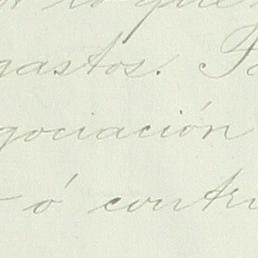 lo que
gastos.
gociación
ó contr